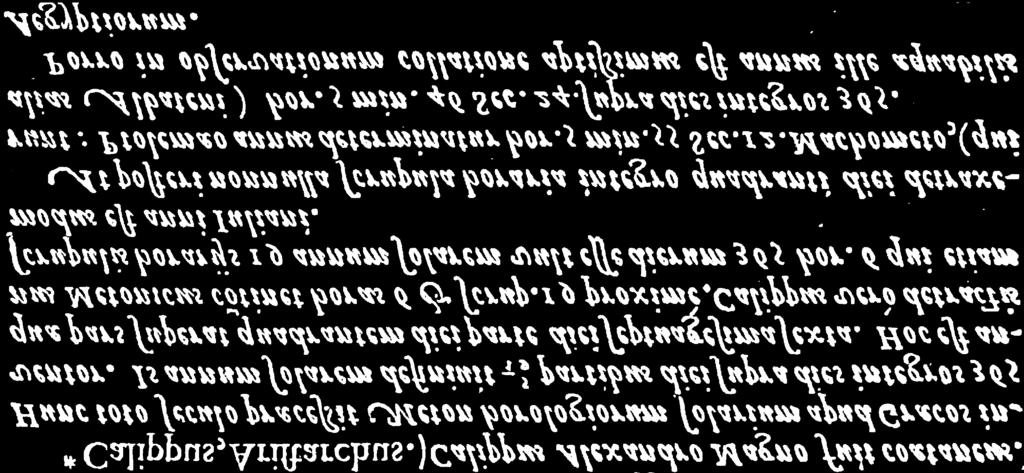 * Calippus, Ariſtarchus.) Calippus Alexandro Magno fuit coetaneus.
Hunc toto ſeculo præceſsit Meton horologiorum ſolarium apud Græcos in-
uentor. Is annum ſolarem definiuit partibus diei ſupra dies integros 365
quæ pars ſuperat quadrantem diei parte diei ſeptuageſima ſexta. Hoc eſt an-
nus Metonicus cōtinet horas 6 & ſcrup. 19 proxime. Calippus verò detractis
ſcrupulis horarijs 19 annum ſolarem vult eſſe dierum 365 hor. 6 qui etiam
modus eſt anni Iuliani.
At poſteri nonnulla ſcrupula horaria integro quadranti diei detraxe-
runt : Ptolemæo annus determinatur hor. 5 min. 55 Sec. 12. Machometo, (qui
alias Albateni) hor. 5 min. 46 Sec. 24. ſupra dies integros 365.
Porro in obſervationum collatione aptiſsimus eſt annus ille æquabilis
Aegyptiorum.